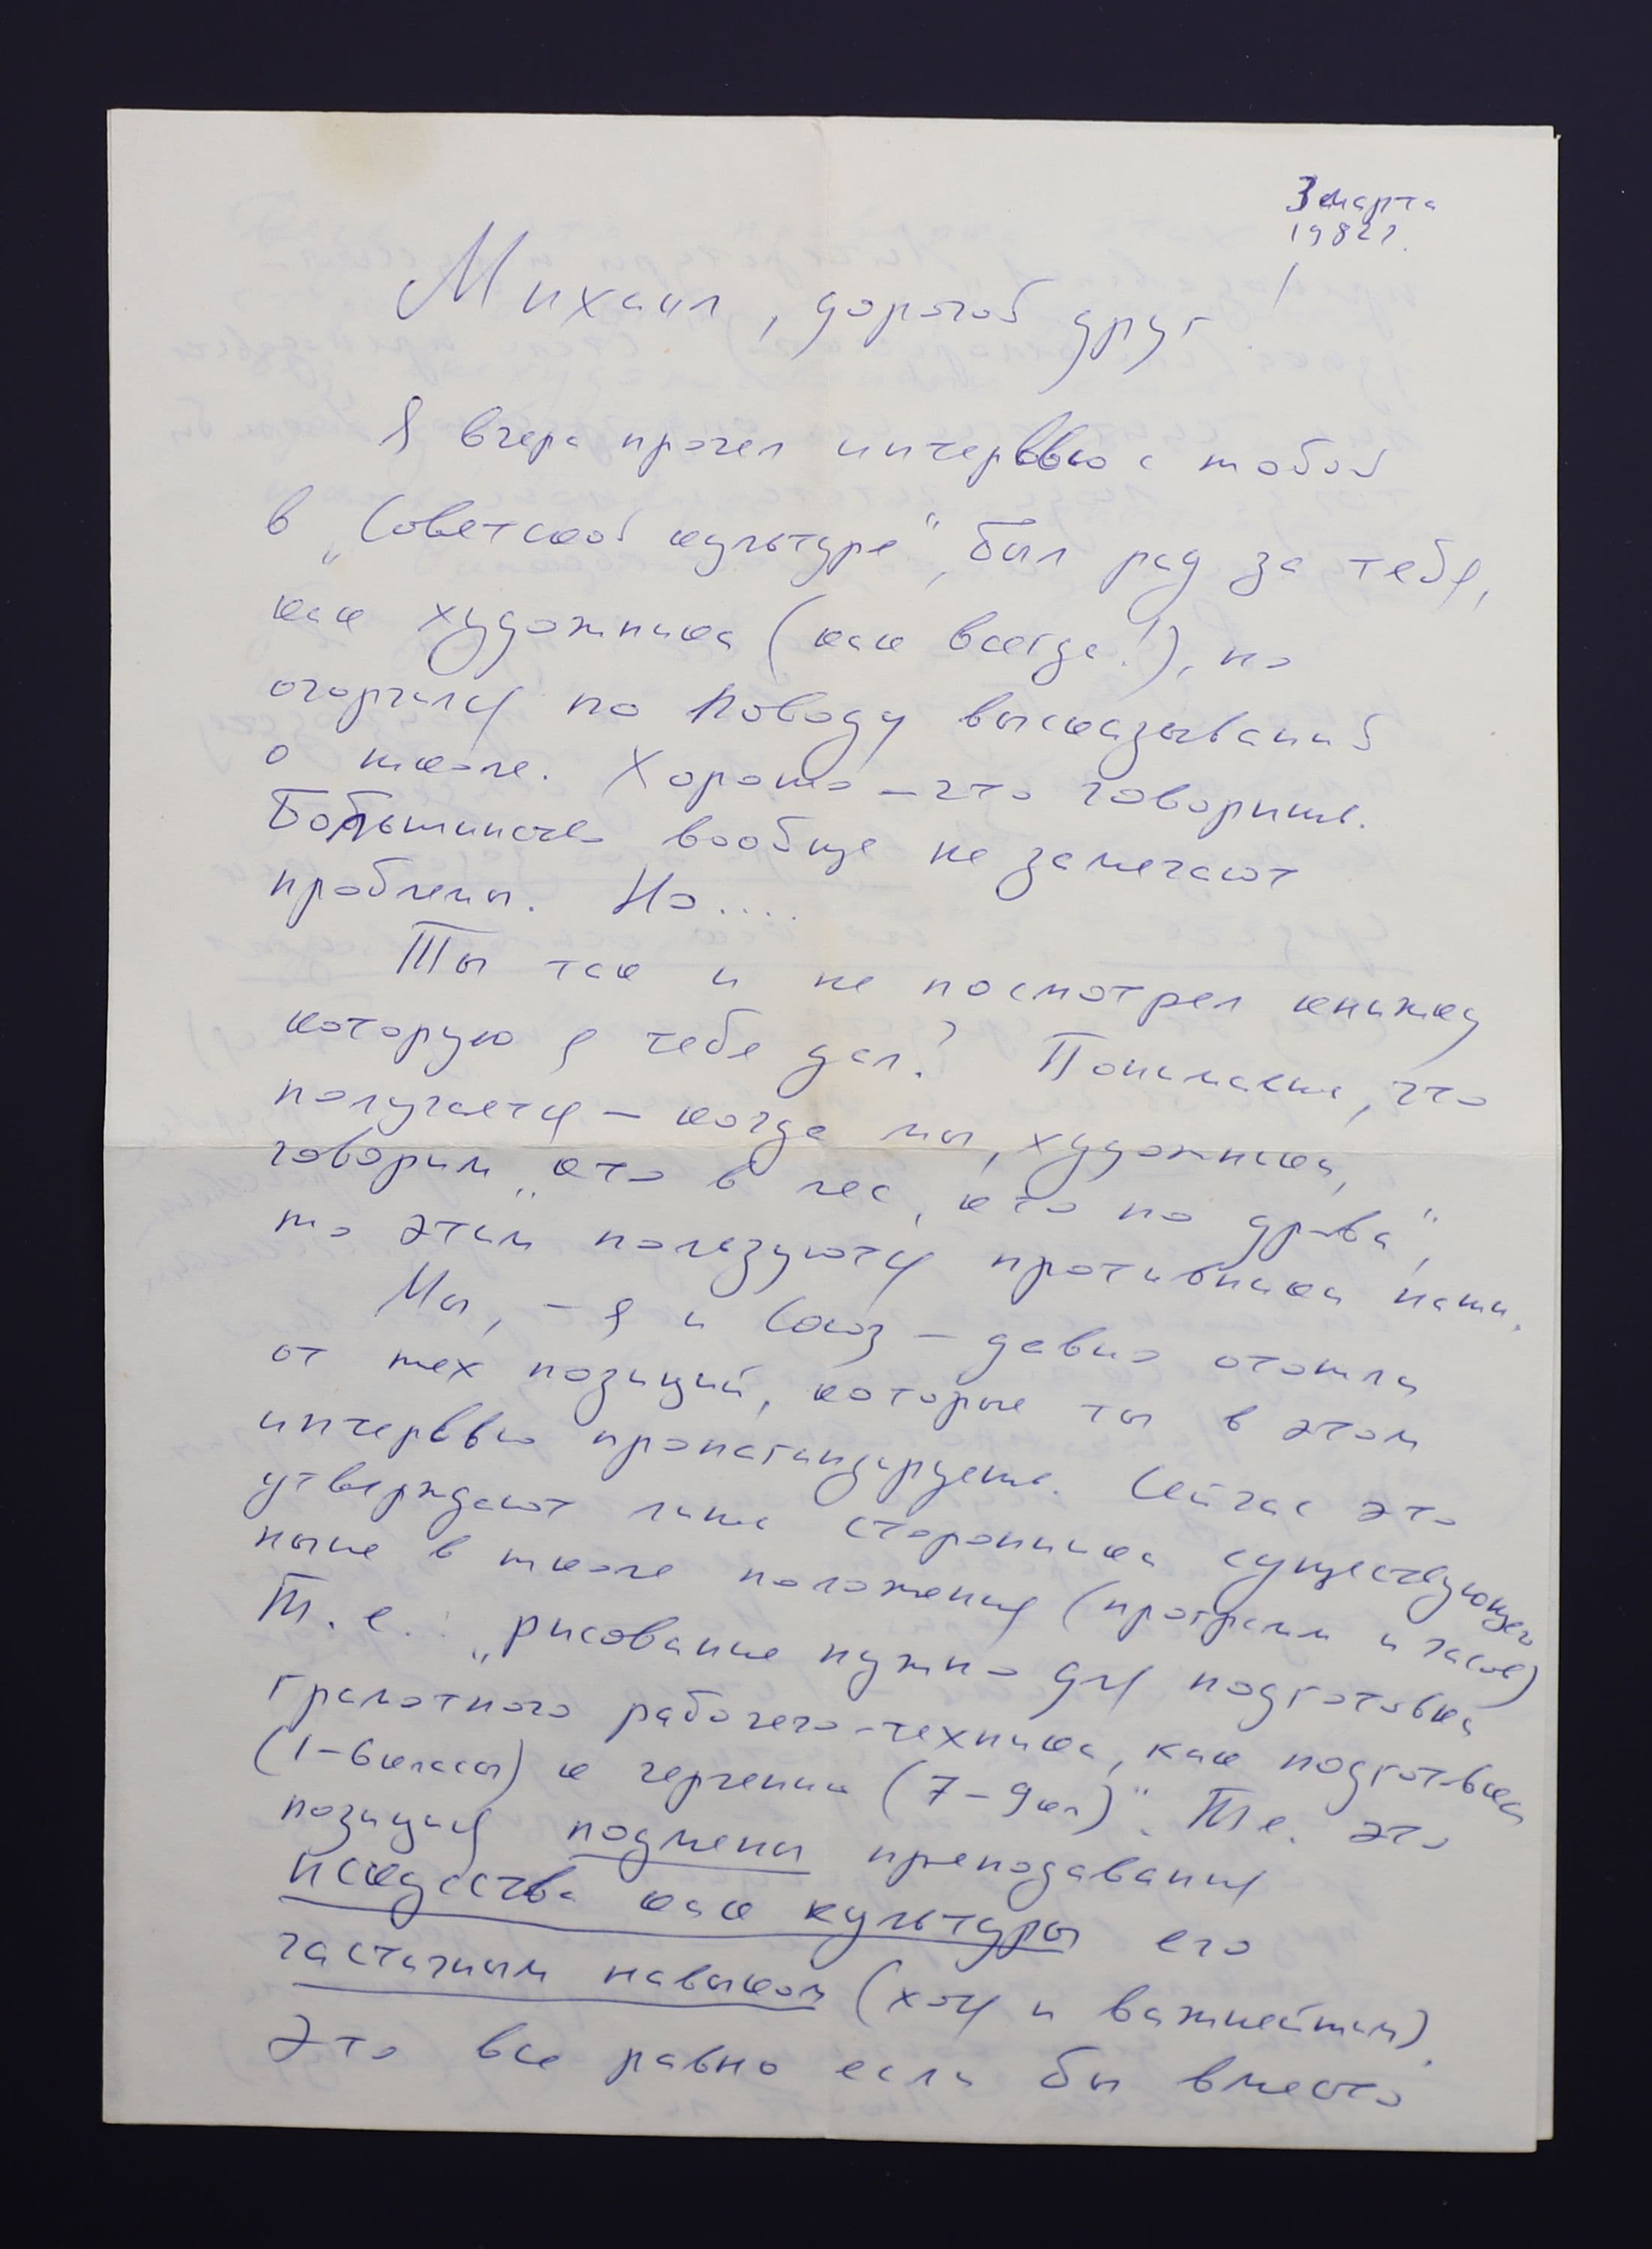 3 марта
1982 г.
Михаил, дорогой друг!
Я вчера прочел интервью с тобой
в „Советской культуре", был рад за тебя,
как художника (как всегда!), но
огорчился по поводу высказываний
о школе. Хорошо – что говоришь.
Большинство вообще не замечают
проблемы. Но....
Ты так и не посмотрел книжку
которую я тебе дал? Понимаешь, что
получается – когда мы, художники,
говорим „кто в лес, кто по дрова",
то этим пользуются противники наши.
Мы, – я и Союз – давно отошли
от тех позиций, которые ты в этом
интервью пропагандируешь. Сейчас это
утверждают лишь сторонники существующего
ныне в школе положения (программ и часов)
Т. е.: „рисование нужно для подготовки
грамотного рабочего-техника, как подготовка
(1–6 классы) к черчению (7–9 кл)". Т.е. это
позиция подмены преподавания
искусства как культуры его
частичным навыком (хотя и важнейшим).
Это все равно если бы вместо